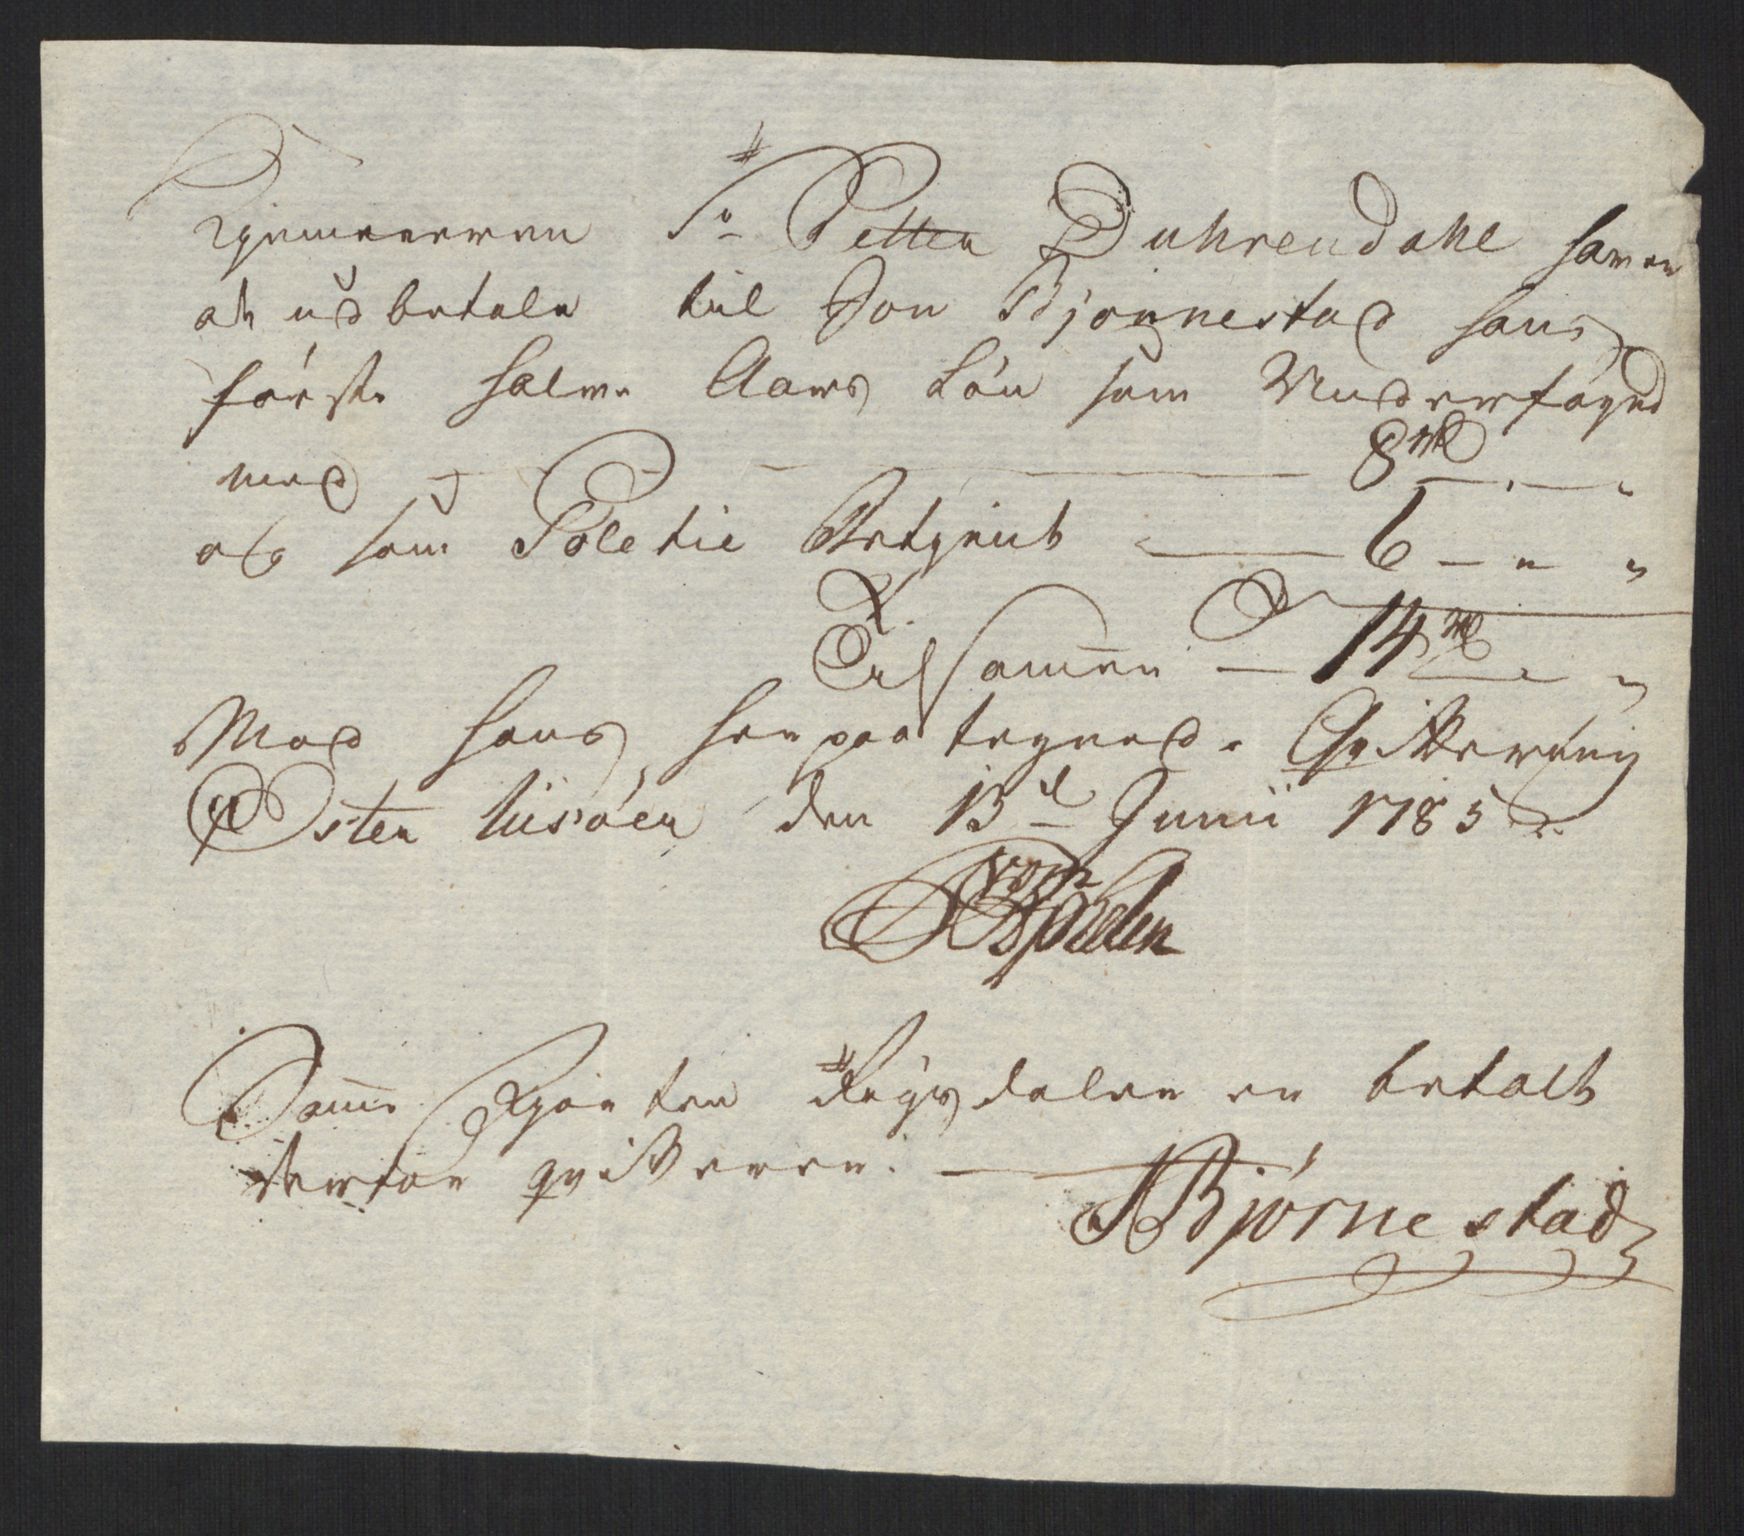 Kjemneeren Sr. Petter Duhrendahl haver
at udbetale til Jon Bjørnestad hans
første halve Aars Løn som Underfoged
med — 8 rd — „
og som Poletie Betjent — 6 — „ „
Tilsamen — 14 rd „ „
Mod hans herpaa tegnede Qvittering
Øster Riisøer den 13de Junii 1785

Same Fjorten Rigsdaler er betalt
derfor qvitterer.
JBjørnestad